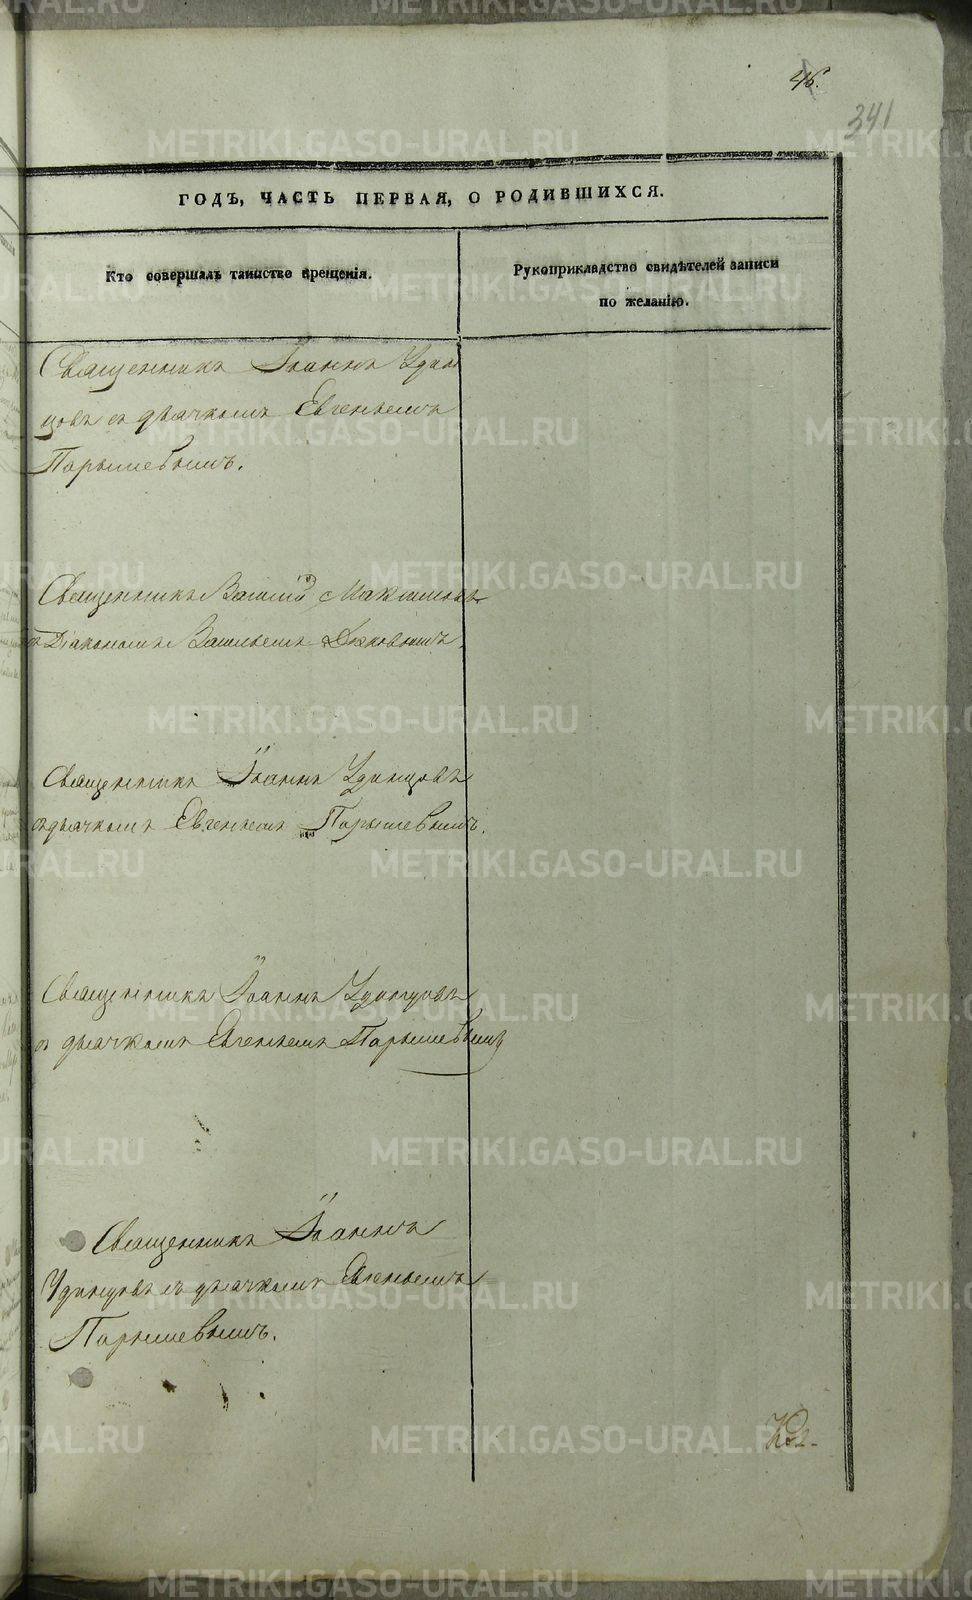 46.
341
ГОДЪ, ЧАСТЬ ПЕРВАЯ, О РОДИВШИХСЯ.
Кто совершалъ таинство крещенія.
Рукоприкладство свидѣтелей записи
по желанію.
Священникъ Іоаннъ Удин
цовъ съ дьячкомъ Евгеніемъ
Парышевымъ.
Священникъ Василій Максимовъ
съ Діакономъ Васильемъ
Священникъ Іоаннъ Удинцовъ
съ дьячкомъ Евгеніемъ Парышевымъ.
Священникъ Іоаннъ Удинцовъ
съ дьячкомъ Евгеніемъ Парышевымъ
Священникъ Іоаннъ
Удинцовъ съ дьячкомъ Евгеніемъ
Парышевымъ.
METRIKI.GASO-URAL.RU